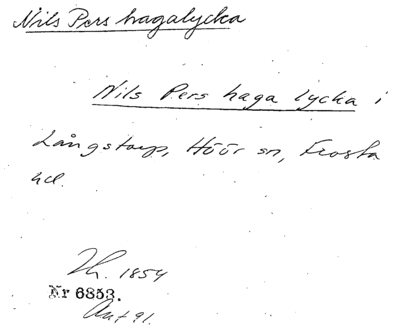 Nils Pers hagalycka
Nils Pers haga lycka i
Långstorp, Höör sn, Frosta
hd.
Th. 1854
Nr 6853.
Ant 91.